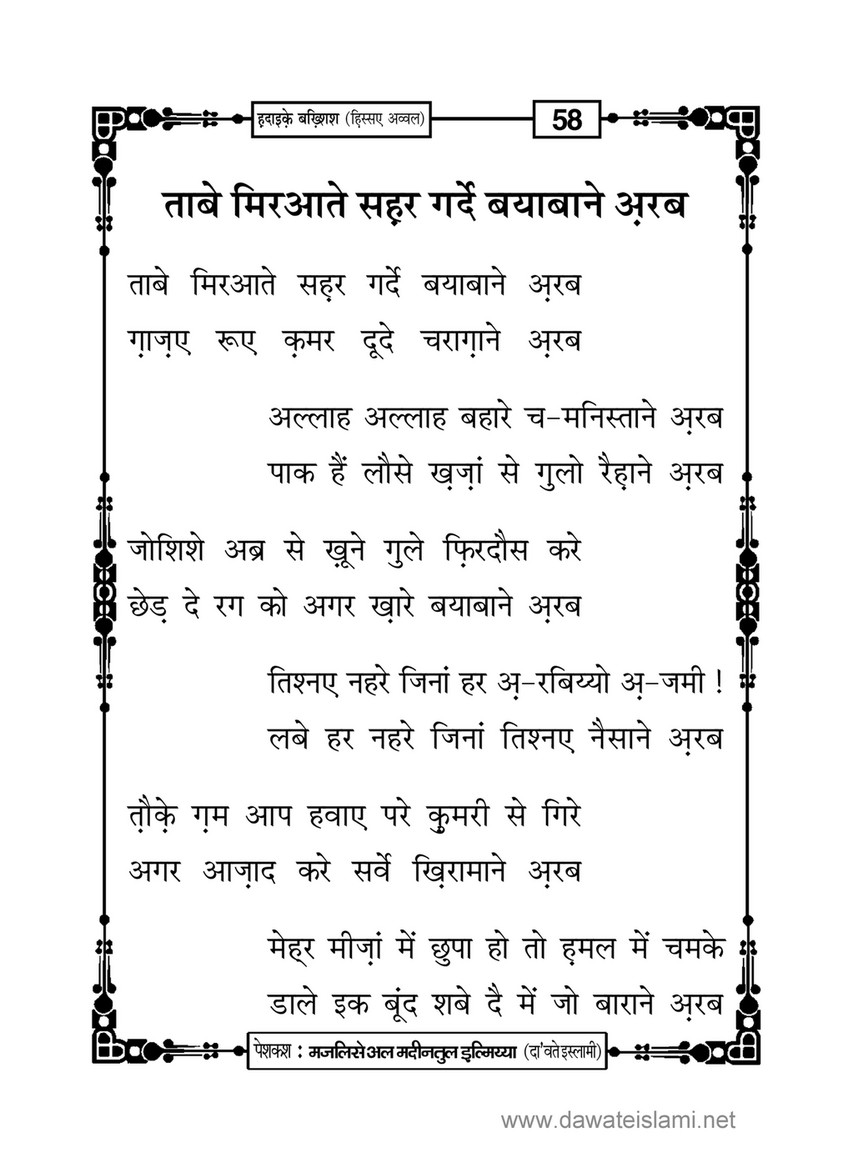 ह़दाइके़ बख़्शिश (हि़स्सए अव्वल)
58
ताबे मिरआते सह़र गर्दे बयाबाने अ़रब
ताबे मिरआते सह़र गर्दे बयाबाने अ़रब
ग़ाज़ए रूए क़मर दूदे चराग़ाने अ़रब
अल्लाह अल्लाह बहारे च-मनिस्ताने अ़रब
पाक हैं लौसे ख़ज़ां से गुलो रैह़ाने अ़रब
जोशिशे अब्र से ख़ूने गुले फ़िरदौस करे
छेड़ दे रग को अगर ख़ारे बयाबाने अ़रब
तिश्नए नहरे जिनां हर अ़-रबिय्यो अ़-जमी !
लबे हर नहरे जिनां तिश्नए नैसाने अ़रब
त़ौके़ ग़म आप हवाए परे क़ुमरी से गिरे
अगर आज़ाद करे सर्वे ख़िरामाने अ़रब
मेह्‌र मीज़ां में छुपा हो तो ह़मल में चमके
डाले इक बूंद शबे दै में जो बाराने अ़रब
पेशकश : मजलिसे अल मदीनतुल इल्मिय्या (दा'वते इस्लामी)
www.dawateislami.net